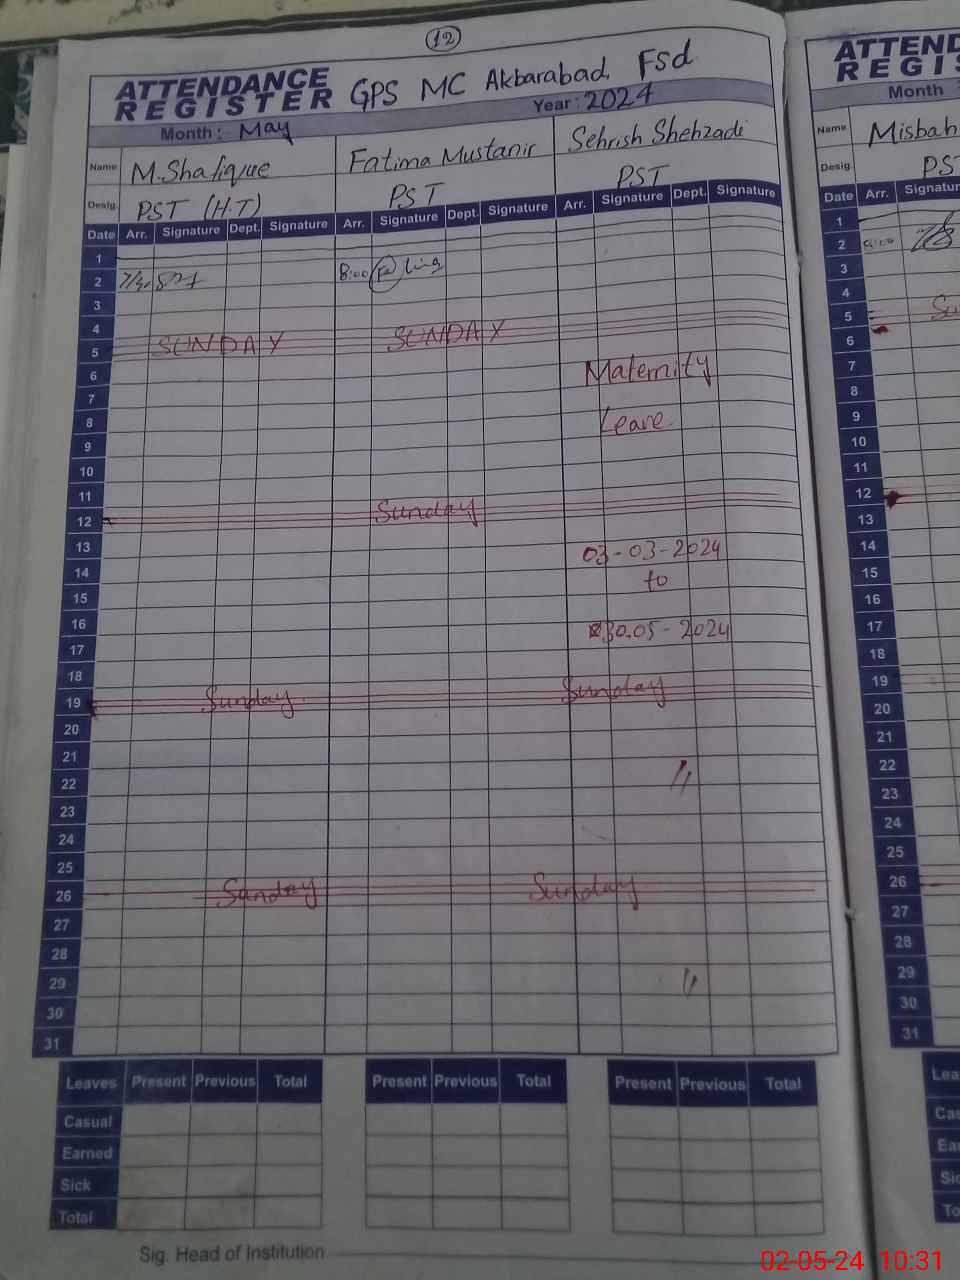 12
ATTENDANCE
REGISTER
GPS MC Akbarabad. Fsd
Month: May
Year: 2024
Name M.Shafique Fatima Mustanir Sehrish Shehzadi
Desig. PST (H.T) PST PST
Date Arr. Signature Dept. Signature Arr. Signature Dept. Signature Arr. Signature Dept. Signature
1
2 8:00
3
4
5 SUNDAY SUNDAY
6 Maternity
7
8 Leave
9
10
11
12 Sunday
13 03-03-2024
14 to
15
16 30.05-2024
17
18
19 Sunday. Sunday
20
21
22 "
23
24
25
26 Sunday Sunday
27
28
29 "
30
31
Leaves Present Previous Total Present Previous Total Present Previous Total
Casual
Earned
Sick
Total
Sig. Head of Institution
ATTEND
REGIS
Month
Name Misbah
Desig. PST
Date Arr. Signatur
1
2 8:00
3
4
5 Su
6
7
8
9
10
11
12
13
14
15
16
17
18
19
20
21
22
23
24
25
26
27
28
29
30
31
Lea
Cas
Ear
Sic
To
02-05-24 10:31